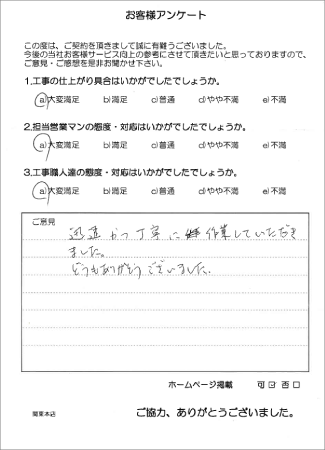 お客様アンケート
この度は、ご契約を頂きまして誠に有難うございました。
今後の当社お客様サービス向上の参考にさせて頂きたいと思っておりますので、
ご意見・ご感想を是非お聞かせ下さい。
1.工事の仕上がり具合はいかがでしたでしょうか。
a)大変満足 b)満足 c)普通 d)やや不満 e)不満
2.担当営業マンの態度・対応はいかがでしたでしょうか。
a)大変満足 b)満足 c)普通 d)やや不満 e)不満
3.工事職人達の態度・対応はいかがでしたでしょうか。
a)大変満足 b)満足 c)普通 d)やや不満 e)不満
ご意見
迅速かつ丁寧に作業していただき
ました。
どうもありがとうございました。
ホームページ掲載 可 ☑ 否 □
関東本店 ご協力、ありがとうございました。